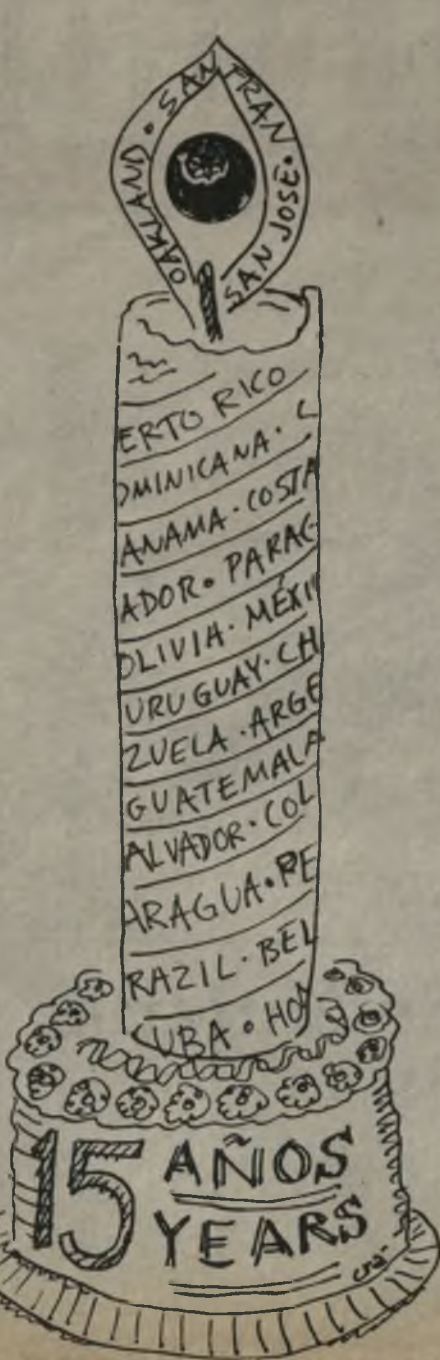 OAKLAND • SAN FRAN • SAN JOSÉ
ERTO RICO
OMINICANA •
ANAMA • COSTA
ADOR • PARAG
OLIVIA • MÉXI
URUGUAY • CH
ZUELA • ARGE
GUATEMALA
ALVADOR • COL
ARAGUA • PE
RAZIL • BEL
CUBA • HO
15 AÑOS
YEARS